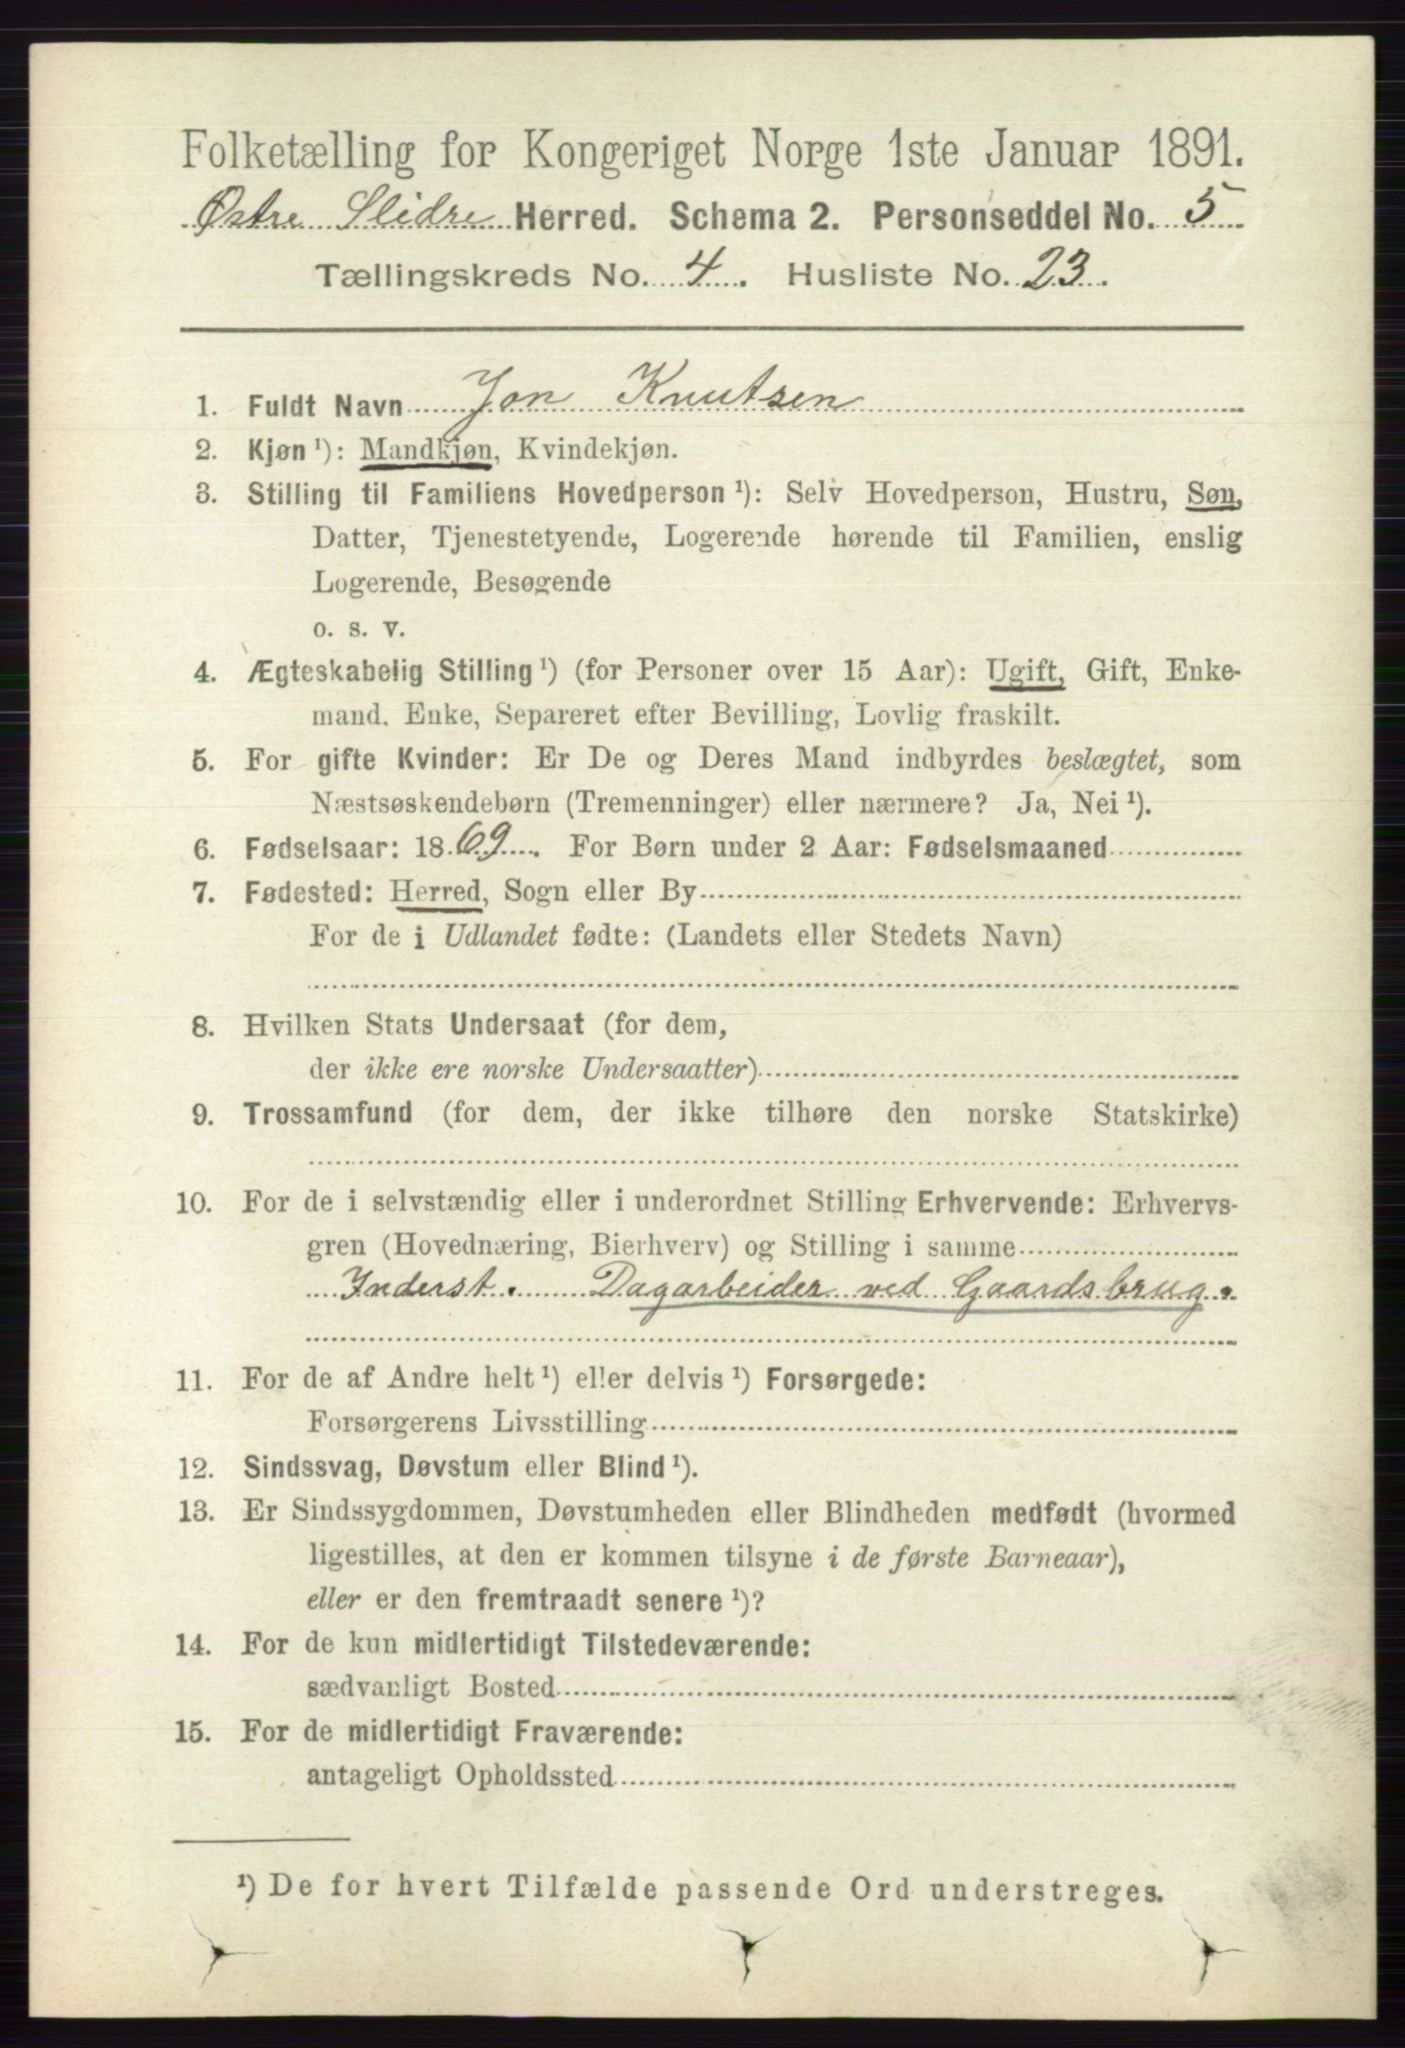 Folketælling for Kongeriget Norge 1ste Januar 1891.
Østre Slidre Herred. Schema 2. Personseddel No. 5
Tællingskreds No. 4. Husliste No. 23.
1. Fuldt Navn Jon Knutsen
2. Kjøn ¹): Mandkjøn, Kvindekjøn.
3. Stilling til Familiens Hovedperson ¹): Selv Hovedperson, Hustru, Søn,
Datter, Tjenestetyende, Logerende hørende til Familien, enslig
Logerende, Besøgende
o. s. v.
4. Ægteskabelig Stilling ¹) (for Personer over 15 Aar): Ugift, Gift, Enke-
mand, Enke, Separeret efter Bevilling, Lovlig fraskilt.
5. For gifte Kvinder: Er De og Deres Mand indbyrdes beslægtet, som
Næstsøskendebørn (Tremenninger) eller nærmere? Ja, Nei ¹).
6. Fødselsaar: 1869. For Børn under 2 Aar: Fødselsmaaned
7. Fødested: Herred, Sogn eller By
For de i Udlandet fødte: (Landets eller Stedets Navn)
8. Hvilken Stats Undersaat (for dem,
der ikke ere norske Undersaatter)
9. Trossamfund (for dem, der ikke tilhøre den norske Statskirke)
10. For de i selvstændig eller i underordnet Stilling Erhvervende: Erhvervs-
gren (Hovednæring, Bierhverv) og Stilling i samme
Inderst. Dagarbeider ved Gaardsbrug.
11. For de af Andre helt ¹) eller delvis ¹) Forsørgede:
Forsørgerens Livsstilling
12. Sindssvag, Døvstum eller Blind ¹).
13. Er Sindssygdommen, Døvstumheden eller Blindheden medfødt (hvormed
ligestilles, at den er kommen tilsyne i de første Barneaar),
eller er den fremtraadt senere ¹)?
14. For de kun midlertidigt Tilstedeværende:
sædvanligt Bosted
15. For de midlertidigt Fraværende:
antageligt Opholdssted
¹) De for hvert Tilfælde passende Ord understreges.